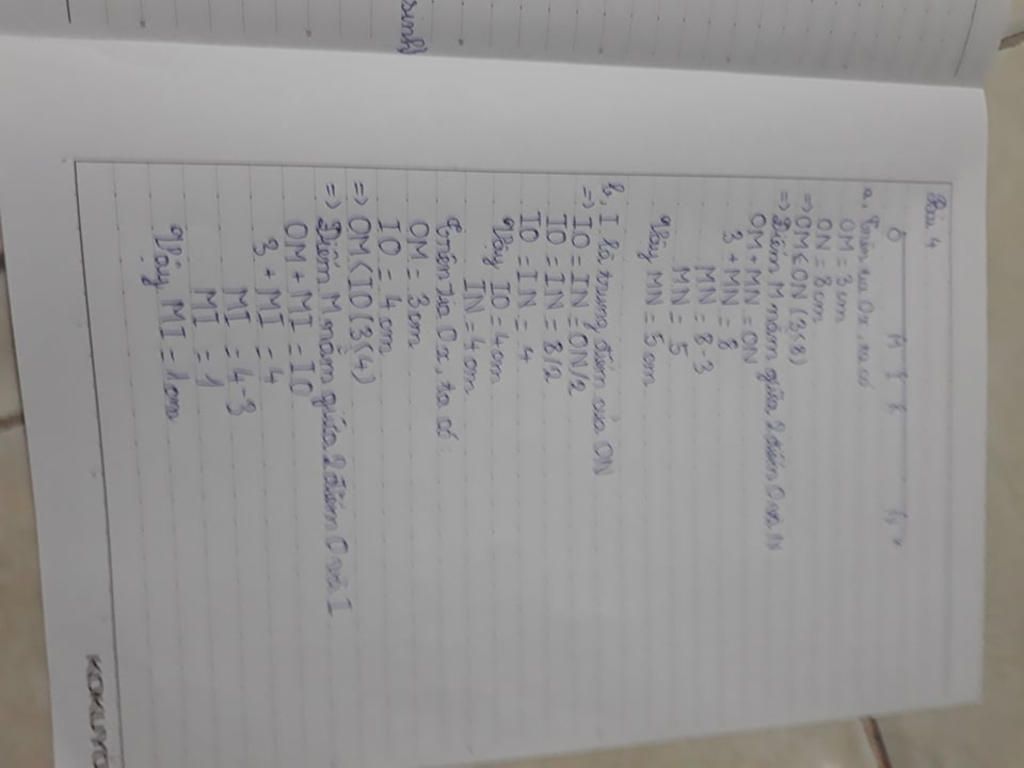 sinh)
Bài 4
O M I E N x
a, Trên tia Ox, ta có
OM = 3cm
ON = 8cm
=> OM < ON (3<8)
=> Điểm M nằm giữa 2 điểm O và N
OM + MN = ON
3 + MN = 8
MN = 8-3
MN = 5
Vậy MN = 5 cm
b, I là trung điểm của ON
=> IO = IN = ON/2
IO = IN = 8/2
IO = IN = 4
Vậy IO = 4cm
IN = 4cm
Trên tia Ox, ta có:
OM = 3cm
IO = 4cm
=> OM < IO (3<4)
=> Điểm M nằm giữa 2 điểm O với I
OM + MI = IO
3 + MI = 4
MI = 4-3
MI = 1
Vậy MI = 1cm